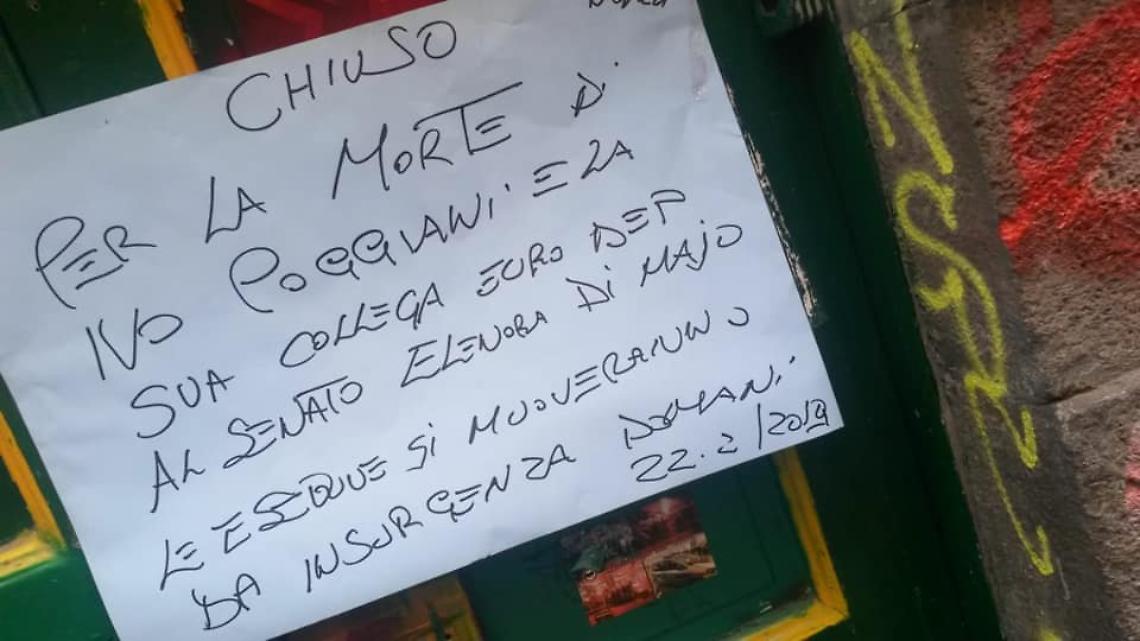 CHIUSO
PER LA MORTE Di
IVO POGGIANi E LA
SUA COLLEGA EURO DEP
AL SENATO ELENORA Di MAJO
LE ESEQUIE Si MUOVERANNO
DA INSURGENZA DOMANi
22.2/2019